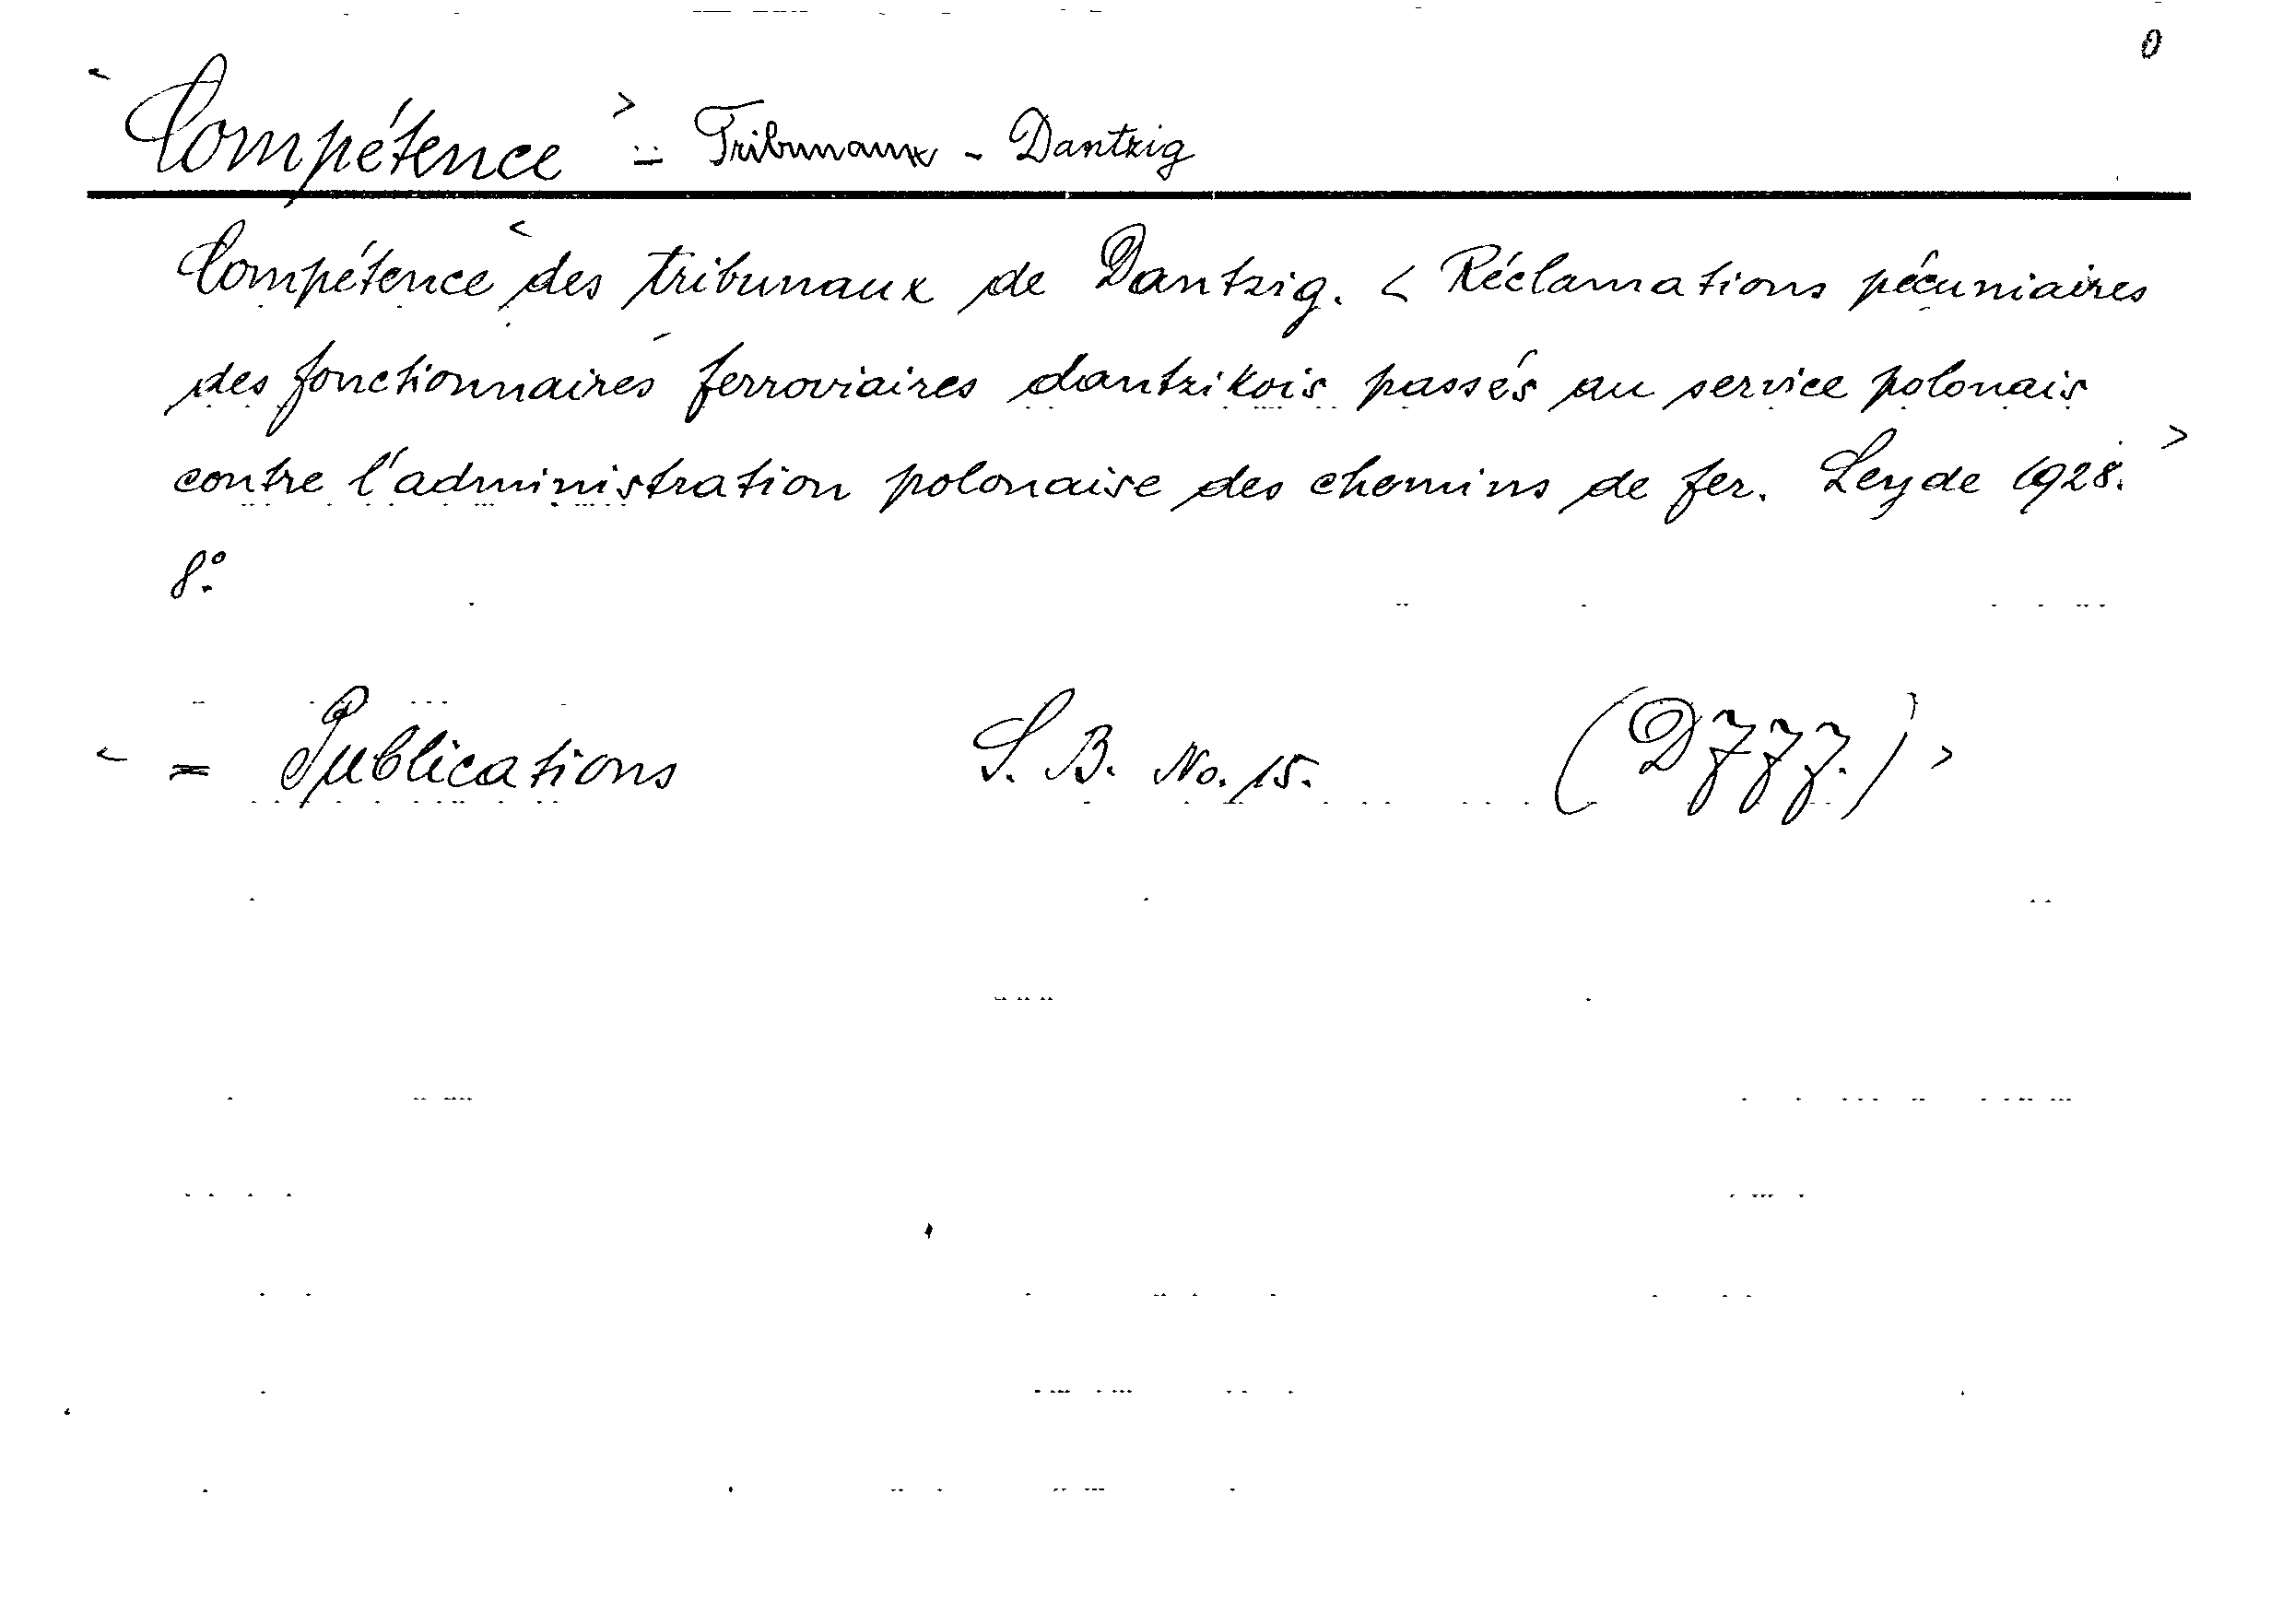 0
< Compétence > = Tribunaux - Dantzig
Compétence < des tribunaux de Dantzig. < Réclamations pécuniaires
des fonctionnaires ferroviaires dantzikois passés au service polonais
contre l'administration polonaise des chemins de fer. Leyde 1928. >
8°.
< = Publications S. B. No. 15. (D777.) >